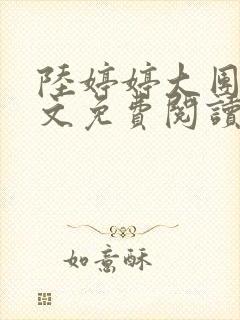 陸婷婷大團
文免費閱讀
如意酥